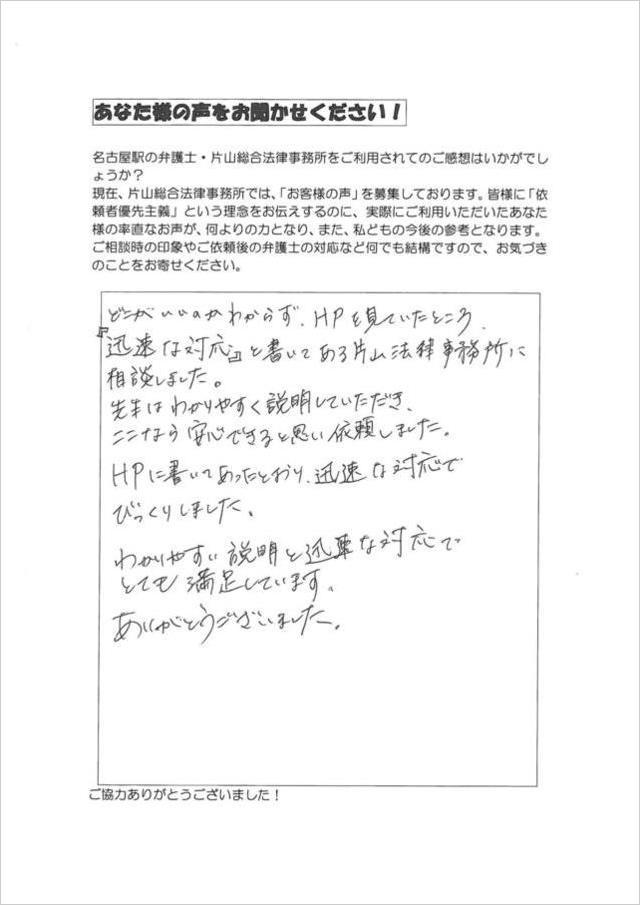 あなた様の声をお聞かせください！
名古屋駅の弁護士・片山総合法律事務所をご利用されてのご感想はいかがでし
ょうか？
現在、片山総合法律事務所では、「お客様の声」を募集しております。皆様に「依
頼者優先主義」という理念をお伝えするのに、実際にご利用いただいたあなた
様の率直なお声が、何よりの力となり、また、私どもの今後の参考となります。
ご相談時の印象やご依頼後の弁護士の対応など何でも結構ですので、お気づき
のことをお寄せください。
どこがいいのかわからず、HPを見ていたところ、
『迅速な対応』と書いてある片山法律事務所に
相談しました。
先生はわかりやすく説明していただき、
ここなら安心できると思い依頼しました。
HPに書いてあったとおり、迅速な対応で
びっくりしました。
わかりやすい説明と迅速な対応で
とても満足しています。
ありがとうございました。
ご協力ありがとうございました！